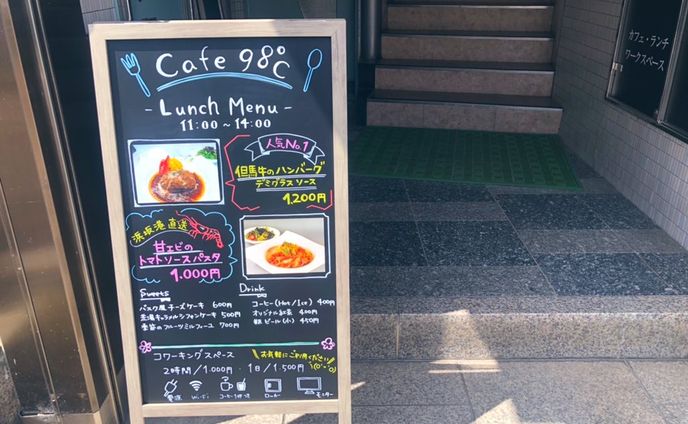 Cafe 98℃
- Lunch Menu -
11:00～14:00
人気No.1
但馬牛のハンバーグ
デミグラスソース
1,200円
浜坂港直送
甘エビの
トマトソースパスタ
1,000円
Sweets
バスク風チーズケーキ 600円
キャラメルシフォンケーキ 500円
季節のフルーツミルフィーユ 700円
Drink
コーヒー(Hot/Ice) 400円
オリジナル紅茶 400円
瓶ビール(小) 450円
コワーキングスペース
お気軽にご利用ください
2時間/1,000円・1日/1,500円
電源
Wi-Fi
モニター
カフェ・ランチ
ワークスペース